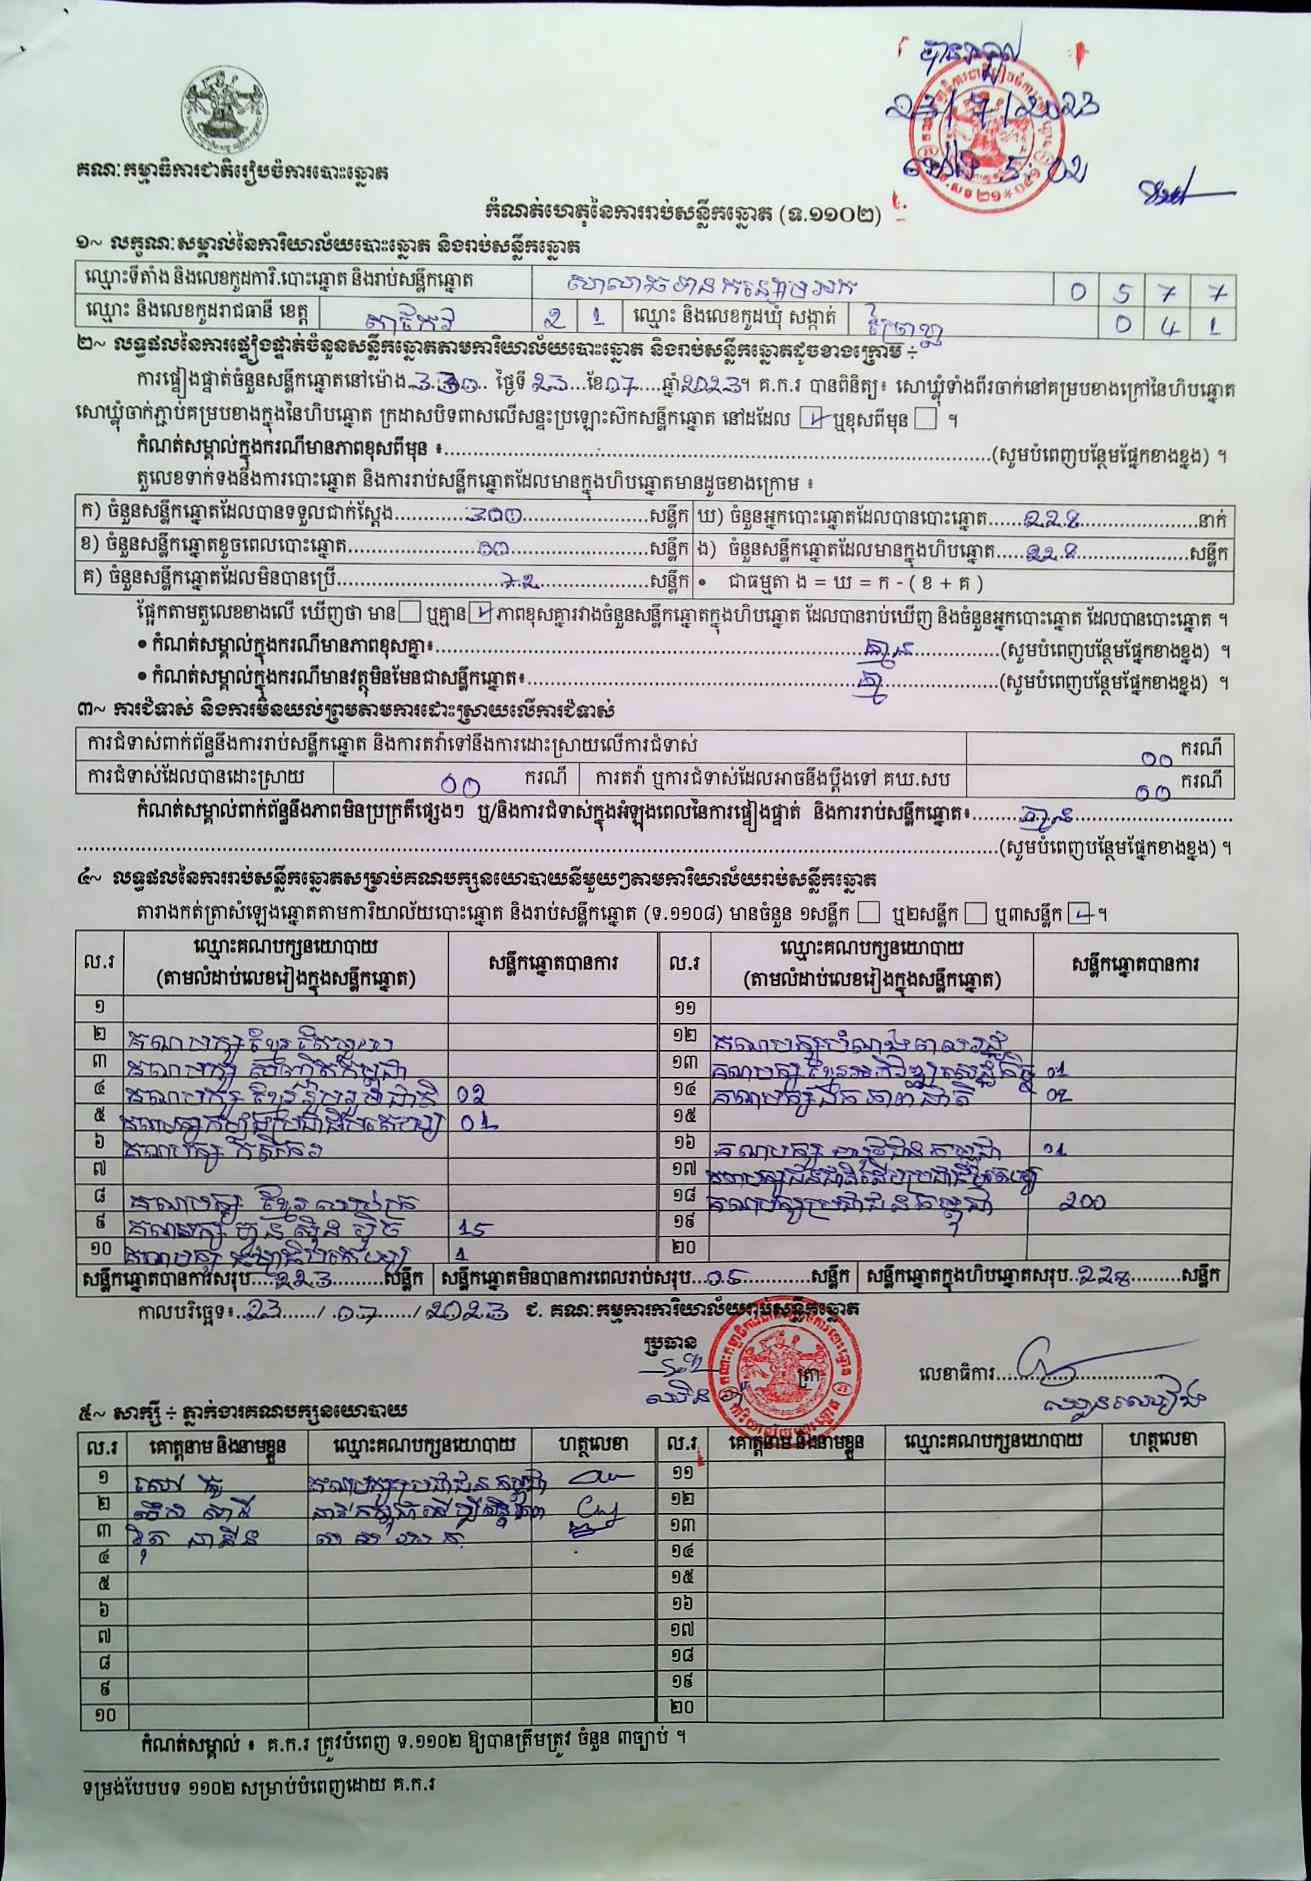 បានទទួល
23/7/2023
ម៉ោង 5:02
គណៈកម្មាធិការជាតិរៀបចំការបោះឆ្នោត
កំណត់ហេតុនៃការរាប់សន្លឹកឆ្នោត (ទ.១១០២)
១~ លក្ខណៈសម្គាល់នៃការិយាល័យបោះឆ្នោត និងរាប់សន្លឹកឆ្នោត
ឈ្មោះទីតាំង និងលេខកូដការិ.បោះឆ្នោត និងរាប់សន្លឹកឆ្នោត 0 5 7 7
ឈ្មោះ និងលេខកូដរាជធានី ខេត្ត តាកែវ 2 1 ឈ្មោះ និងលេខកូដឃុំ សង្កាត់ 0 4 1
២~ លទ្ធផលនៃការផ្ទៀងផ្ទាត់ចំនួនសន្លឹកឆ្នោតតាមការិយាល័យបោះឆ្នោត និងរាប់សន្លឹកឆ្នោតដូចខាងក្រោម ÷
ការផ្ទៀងផ្ទាត់ចំនួនសន្លឹកឆ្នោតនៅម៉ោង 3:30 ថ្ងៃទី 23 ខែ 07 ឆ្នាំ 2023។ គ.ក.រ បានពិនិត្យ៖ សោឃ្លុំទាំងពីរចាក់នៅគម្របខាងក្រៅនៃហិបឆ្នោត
សោឃ្លុំចាក់ភ្ជាប់គម្របខាងក្នុងនៃហិបឆ្នោត ក្រដាសបិទពាសលើសន្ទះប្រឡោះស៊កសន្លឹកឆ្នោត នៅដដែល ☑ ឬខុសពីមុន ☐ ។
កំណត់សម្គាល់ក្នុងករណីមានភាពខុសពីមុន ៖ (សូមបំពេញបន្ថែមផ្នែកខាងខ្នង) ។
តួលេខទាក់ទងនឹងការបោះឆ្នោត និងការរាប់សន្លឹកឆ្នោតដែលមានក្នុងហិបឆ្នោតមានដូចខាងក្រោម ៖
ក) ចំនួនសន្លឹកឆ្នោតដែលបានទទួលជាក់ស្តែង 300 សន្លឹក ឃ) ចំនួនអ្នកបោះឆ្នោតដែលបានបោះឆ្នោត 228 នាក់
ខ) ចំនួនសន្លឹកឆ្នោតខូចពេលបោះឆ្នោត 00 សន្លឹក ង) ចំនួនសន្លឹកឆ្នោតដែលមានក្នុងហិបឆ្នោត 228 សន្លឹក
គ) ចំនួនសន្លឹកឆ្នោតដែលមិនបានប្រើ 72 សន្លឹក • ជាធម្មតា ង = ឃ = ក - ( ខ + គ )
ផ្អែកតាមតួលេខខាងលើ ឃើញថា មាន ☐ ឬគ្មាន ☑ ភាពខុសគ្នារវាងចំនួនសន្លឹកឆ្នោតក្នុងហិបឆ្នោត ដែលបានរាប់ឃើញ និងចំនួនអ្នកបោះឆ្នោត ដែលបានបោះឆ្នោត ។
• កំណត់សម្គាល់ក្នុងករណីមានភាពខុសគ្នា៖ គ្មាន (សូមបំពេញបន្ថែមផ្នែកខាងខ្នង) ។
• កំណត់សម្គាល់ក្នុងករណីមានវត្ថុមិនមែនជាសន្លឹកឆ្នោត៖ (សូមបំពេញបន្ថែមផ្នែកខាងខ្នង) ។
៣~ ការជំទាស់ និងការមិនយល់ព្រមតាមការដោះស្រាយលើការជំទាស់
ការជំទាស់ពាក់ព័ន្ធនឹងការរាប់សន្លឹកឆ្នោត និងការតវ៉ាទៅនឹងការដោះស្រាយលើការជំទាស់ 00 ករណី
ការជំទាស់ដែលបានដោះស្រាយ 00 ករណី ការតវ៉ា ឬការជំទាស់ដែលអាចនឹងប្តឹងទៅ គឃ.សប 00 ករណី
កំណត់សម្គាល់ពាក់ព័ន្ធនឹងភាពមិនប្រក្រតីផ្សេងៗ ឬ/និងការជំទាស់ក្នុងអំឡុងពេលនៃការផ្ទៀងផ្ទាត់ និងការរាប់សន្លឹកឆ្នោត៖ គ្មាន
(សូមបំពេញបន្ថែមផ្នែកខាងខ្នង) ។
៤~ លទ្ធផលនៃការរាប់សន្លឹកឆ្នោតសម្រាប់គណបក្សនយោបាយនីមួយៗតាមការិយាល័យរាប់សន្លឹកឆ្នោត
តារាងកត់ត្រាសំឡេងឆ្នោតតាមការិយាល័យបោះឆ្នោត និងរាប់សន្លឹកឆ្នោត (ទ.១១០៨) មានចំនួន ១សន្លឹក ☐ ឬ២សន្លឹក ☐ ឬ៣សន្លឹក ☑ ។
ល.រ ឈ្មោះគណបក្សនយោបាយ (តាមលំដាប់លេខរៀងក្នុងសន្លឹកឆ្នោត) សន្លឹកឆ្នោតបានការ ល.រ ឈ្មោះគណបក្សនយោបាយ (តាមលំដាប់លេខរៀងក្នុងសន្លឹកឆ្នោត) សន្លឹកឆ្នោតបានការ
១ ១១
២ គណបក្ស ខ្មែរ ១២
៣ គណបក្ស កម្ពុជា ១៣ គណបក្ស ខ្មែរអភិវឌ្ឍន៍សេដ្ឋកិច្ច 01
៤ គណបក្ស ខ្មែររួបរួមជាតិ 02 ១៤ គណបក្ស ឯកភាពជាតិ 02
៥ គណបក្ស 01 ១៥
៦ គណបក្ស កសិករ ១៦ គណបក្ស កម្ពុជា 01
៧ ១៧
៨ គណបក្ស ខ្មែរ ឈប់ក្រ ១៨ គណបក្សប្រជាជនកម្ពុជា 200
៩ គណបក្ស ហ៊្វុនស៊ិនប៉ិច 15 ១៩
១០ គណបក្ស 1 ២០
សន្លឹកឆ្នោតបានការសរុប 223 សន្លឹក សន្លឹកឆ្នោតមិនបានការពេលរាប់សរុប 05 សន្លឹក សន្លឹកឆ្នោតក្នុងហិបឆ្នោតសរុប 228 សន្លឹក
កាលបរិច្ឆេទ៖ 23 / 07 / 2023 ជ. គណៈកម្មការការិយាល័យរាប់សន្លឹកឆ្នោត
ប្រធាន
ត្រា លេខាធិការ
៥~ សាក្សី ÷ ភ្នាក់ងារគណបក្សនយោបាយ
ល.រ គោត្តនាម និងនាមខ្លួន ឈ្មោះគណបក្សនយោបាយ ហត្ថលេខា ល.រ គោត្តនាម និងនាមខ្លួន ឈ្មោះគណបក្សនយោបាយ ហត្ថលេខា
១ គណបក្សប្រជាជនកម្ពុជា ១១
២ ១២
៣ ១៣
៤ ១៤
៥ ១៥
៦ ១៦
៧ ១៧
៨ ១៨
៩ ១៩
១០ ២០
កំណត់សម្គាល់ ៖ គ.ក.រ ត្រូវបំពេញ ទ.១១០២ ឱ្យបានត្រឹមត្រូវ ចំនួន ៣ច្បាប់ ។
ទម្រង់បែបបទ ១១០២ សម្រាប់បំពេញដោយ គ.ក.រ